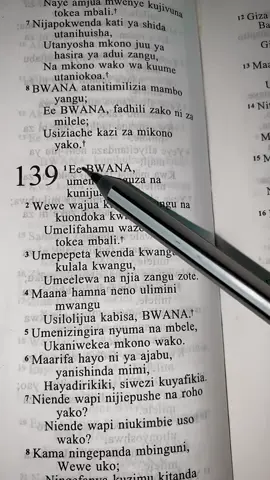 Naye amjua mwenye kujivuna
tokea mbali.†
7 Nijapokwenda kati ya shida
utanihuisha,
Utanyosha mkono juu ya
hasira ya adui zangu,
Na mkono wako wa kuume
utaniokoa.†
8 BWANA atanitimilizia mambo
yangu;
Ee BWANA, fadhili zako ni za
milele;
Usiziache kazi za mikono
yako.†
139 1 Ee BWANA,
na
kunijua
2 Wewe wajua na
kuondoka
Umelifahamu
tokea mbali.†
3 Umepepeta kwenda
kulala kwangu,
Umeelewa na njia zangu zote.
4 Maana hamna neno ulimini
mwangu
Usilolijua kabisa, BWANA.†
5 Umenizingira nyuma na mbele,
Ukaniwekea mkono wako.
6 Maarifa hayo ni ya ajabu,
yanishinda mimi,
Hayadirikiki, siwezi kuyafikia.
7 Niende wapi nijiepushe na roho
yako?
Niende wapi niukimbie uso
wako?
8 Kama ningepanda mbinguni,
Wewe uko;
Ningefanya kuzimu kitanda
12 Giza
14
15 M
16
17